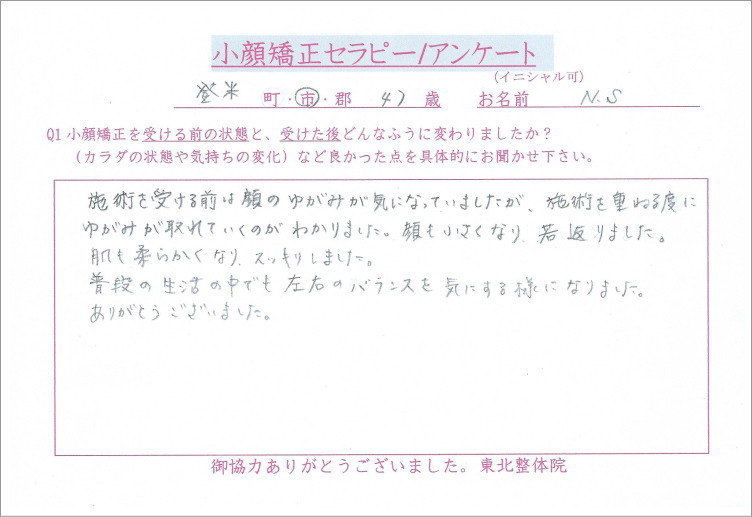 小顔矯正セラピー/アンケート
(イニシャル可)
登米 町・市・郡 47 歳 お名前 N.S
Q1 小顔矯正を受ける前の状態と、受けた後どんなふうに変わりましたか？
（カラダの状態や気持ちの変化）など良かった点を具体的にお聞かせ下さい。
施術を受ける前は顔のゆがみが気になっていましたが、施術を重ねる度に
ゆがみが取れていくのがわかりました。顔も小さくなり、若返りました。
肌も柔らかくなり、スッキリしました。
普段の生活の中でも左右のバランスを気にする様になりました。
ありがとうございました。
御協力ありがとうございました。東北整体院